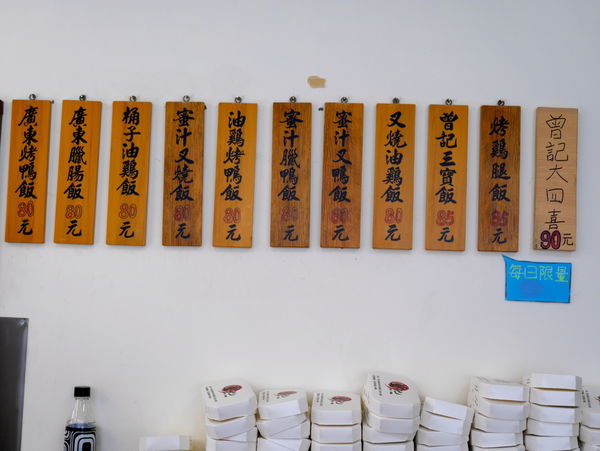 廣東烤鴨飯80元
廣東臘腸飯80元
桶子油鷄飯80元
蜜汁叉燒飯80元
油鷄烤鴨飯80元
蜜汁臘鴨飯80元
蜜汁叉鴨飯80元
叉燒油鷄飯80元
曾記三寶飯85元
烤鷄腿飯85元
曾記大四喜90元
每日限量